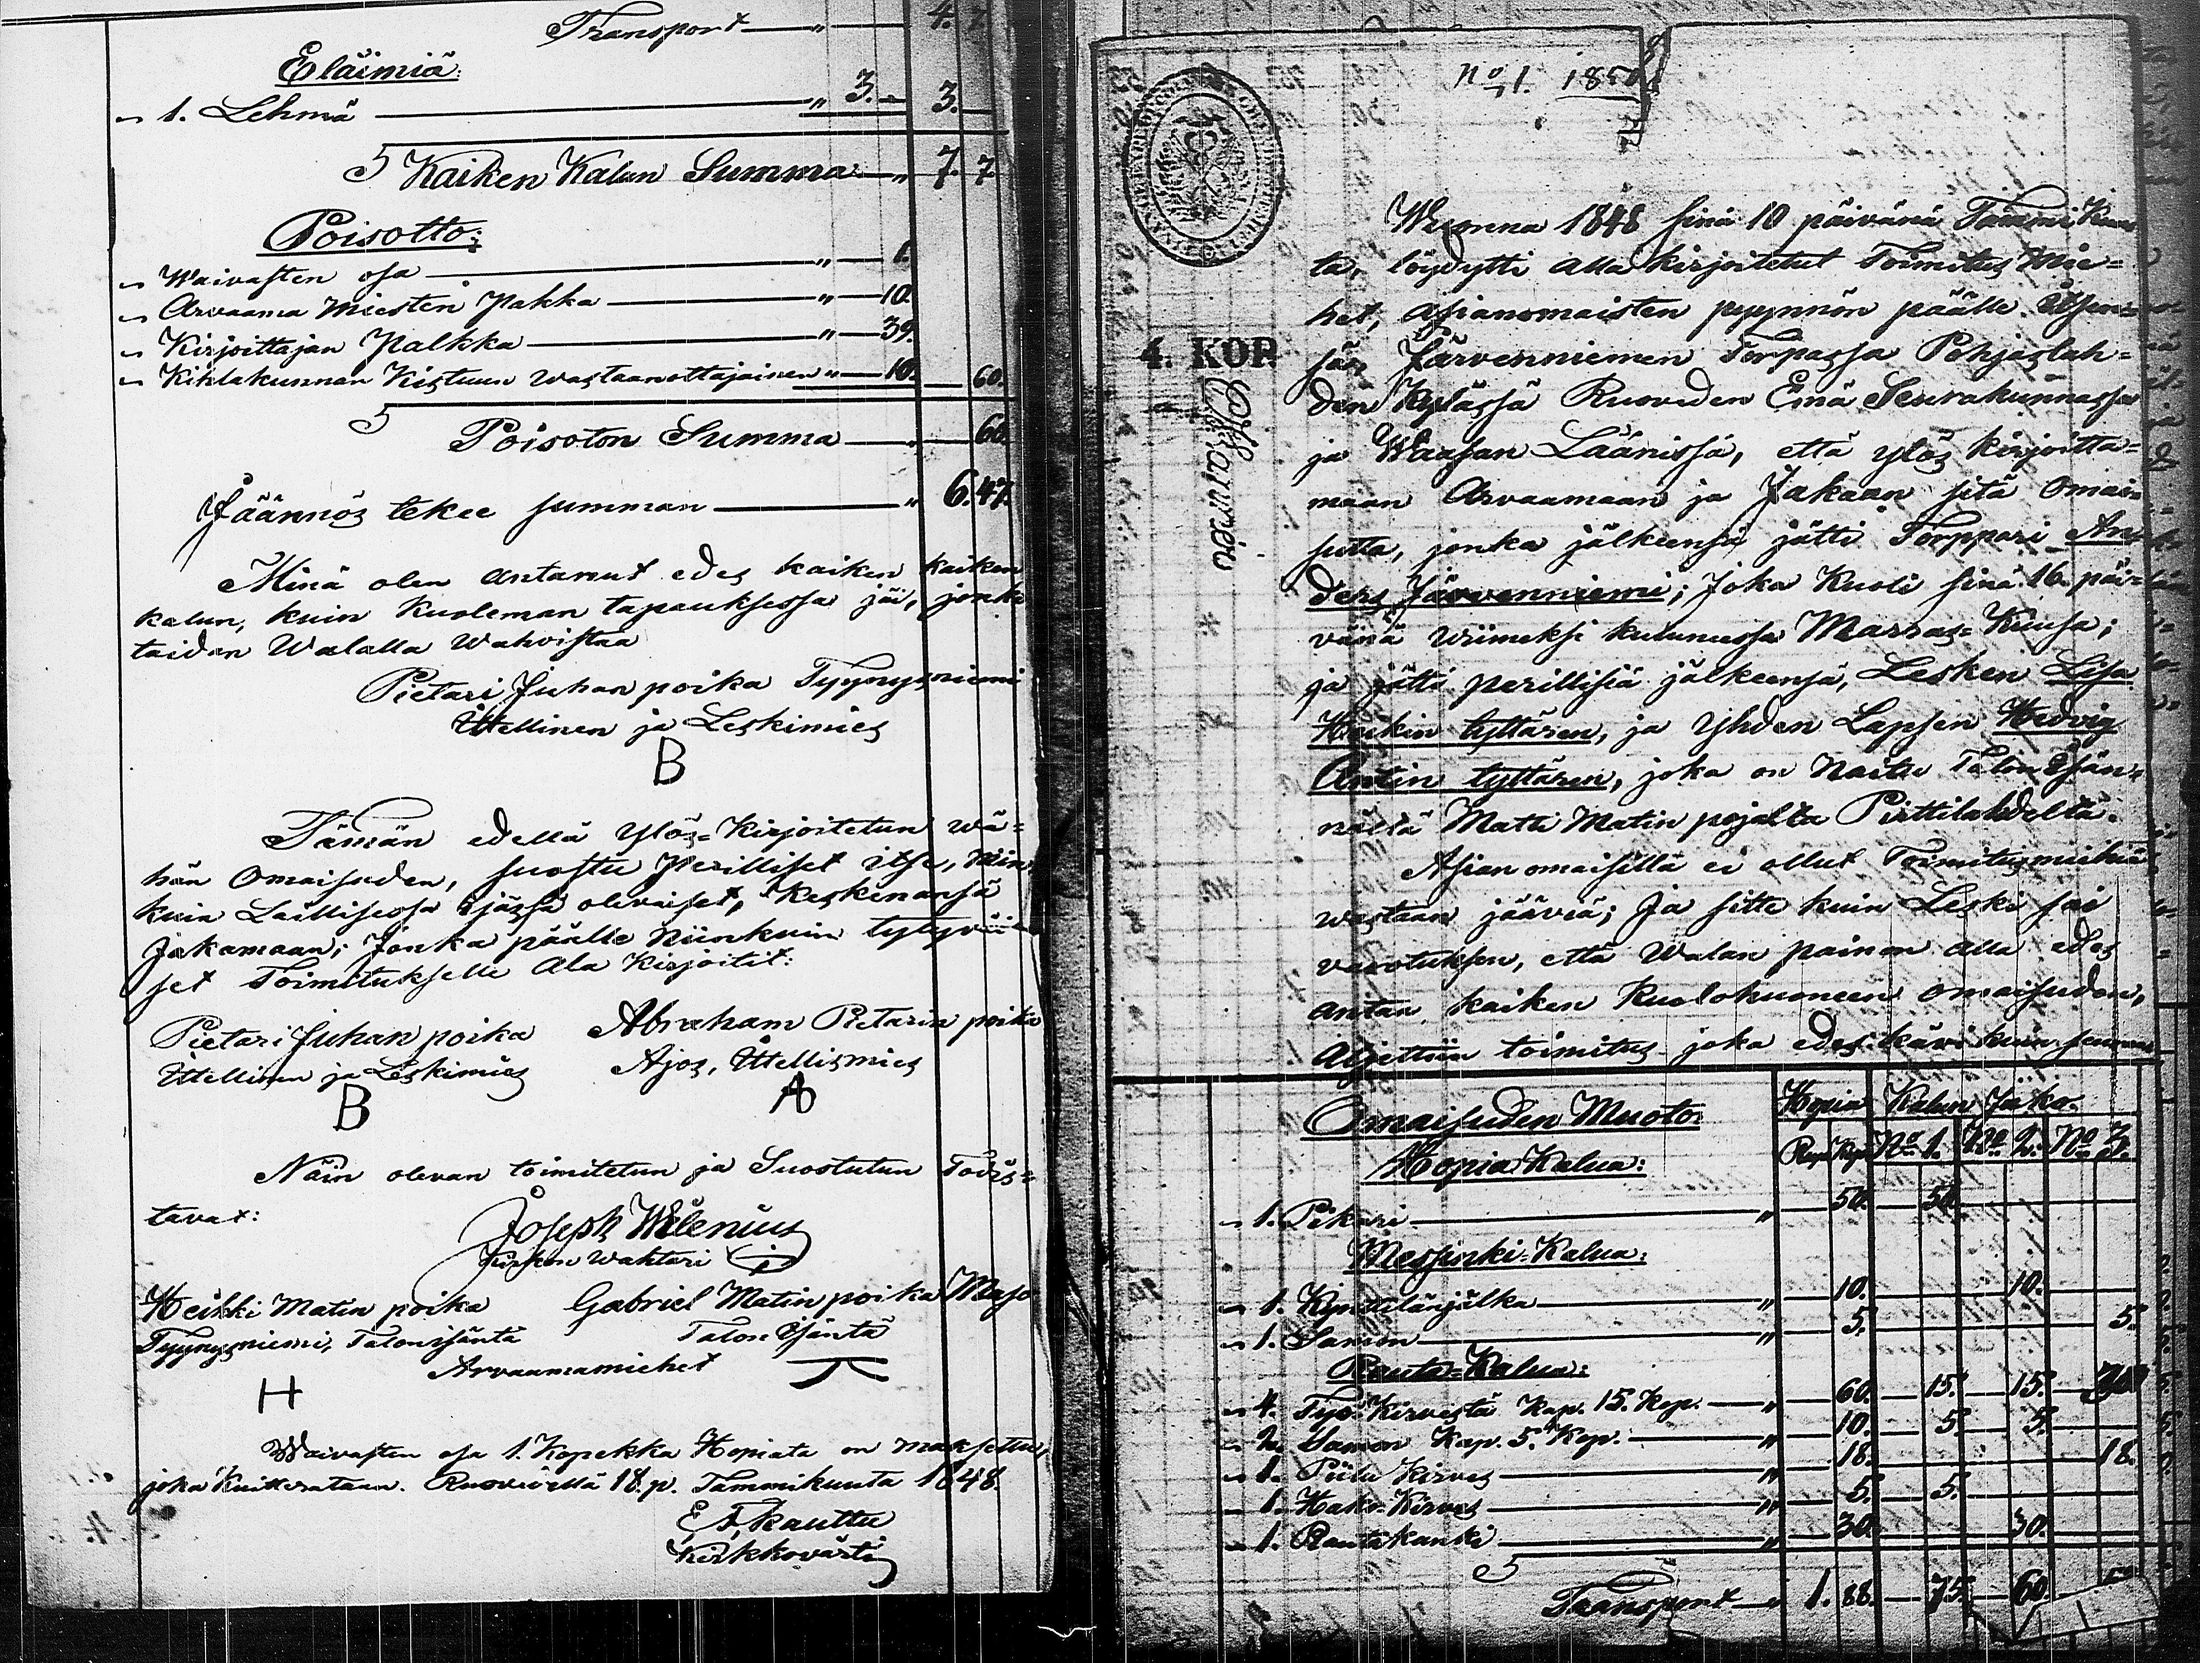 Transport — " — 4. 7
Eläimiä:
" 1. Lehmä — " 3. — 3. —
S Kaiken Kalun Summa — " 7. 7
Poisotto:
" Waivasten osa — " — 1.
" Arvaama Miesten Palkka — " — 10.
" Kirjoittajan Palkka — " — 39.
" Kihlakunnan Kistuun wastaanottajainen " — 10. — 60.
S Poisoton Summa — " — 60.
Jäännös tekee summan — " 6.47.
Minä olen antanut edes kaiken kaiken
kalun, kuin Kuoleman tapauksessa jäi, jonka
taidan Walalla Wahvistaa
Pietari Juhan poika Tyynysniemi
Ittellinen ja Leskimies
B
Tämän edellä ylös=Kirjoitetun wä=
hän Omaisuden, suostu Perilliset itse, niin
kuin Laillisessa ijässä olevaiset, Keskenänsä
Jakamaan; Jonka päälle Niinkuin tytyväi=
set Toimitukselle Ala Kirjoitit:
Pietari Juhan poika Abraham Pietarin poika
Ittellinen ja Leskimies Ajos, Ittellismies
B A
Näin olevan toimitetun ja Suostutun Todis=
tavat:
Joseph Wilenius
Kirkon Wahtari
Heikki Matin poika Gabriel Matin poika Maso
Tyynysniemi, Talonisäntä Talon Isäntä
Arvaamamiehet
H
Waivasten osa 1. Kopekka Hopiata on maksettu,
joka Kuitterataan. Ruovedellä 18. p. Tammikuuta 1848.
Kauttu
Kirkkovärti
No 1. 185
4. KOP.
Wuonna 1848 sinä 10 päivänä Tammi Kuu
ta, löydytti alla kirjoitetut Toimitus Mie=
het, Asianomaisten pyynnön päälle itsen=
sä, Järvenniemen Torpassa Pohjaslah=
den Kylässä Ruoveden Emä Seurakunnassa
ja Waasan Läänissä, että ylös kirjoitta=
maan Arvaamaan ja Jakaan sitä Omai=
sutta, jonka jälkeensä jätti Torppari An=
ders Järvenniemi; Joka Kuoli sinä 16. päi=
vänä wiimeksi kulunussa Marras=Kuusa;
ja jätti perillisiä jälkeensä, Lesken Lisa
Heikin tyttären, ja Yhden Lapsen Hedvig
Antin tyttären, joka on Naitu Talon Isän=
nällä Matti Matin pojalta Pirttilahdelta.
Asian omaisilla ei ollut Toimitusmiehiä
wastaan jääviä; Ja sitte kuin Leski sai
varotuksen, että Walan painon alla edes
antaa kaiken Kuolohuoneen omaisuden,
aljettiin toimitus joka edes käwi kuin seuraa
Omaisuden Muoto: Hopia Kalun Jako.
Hopia Kalua: Rupl Kop No 1. No 2. No 3.
" 1. Pikari — " 50. 50.
Messinki=Kalua:
" 1. Kynttilänjalka — " 10. 10.
" 1. Samon — " 5. 5.
Rauta=Kalua:
" 4. Työ=Kirvestä Kap. 15. Kop. — " 60. 15. 15. 30.
" 2. Samon Kap. 5. Kop. — " 10. 5. 5.
" 1. Piilu Kirves — " 18. 18.
" 1. Hako=Kirves — " 5. 5.
" 1. Rautakanki — " 30. 30.
S Transport — " 1. 88. 75. 60.